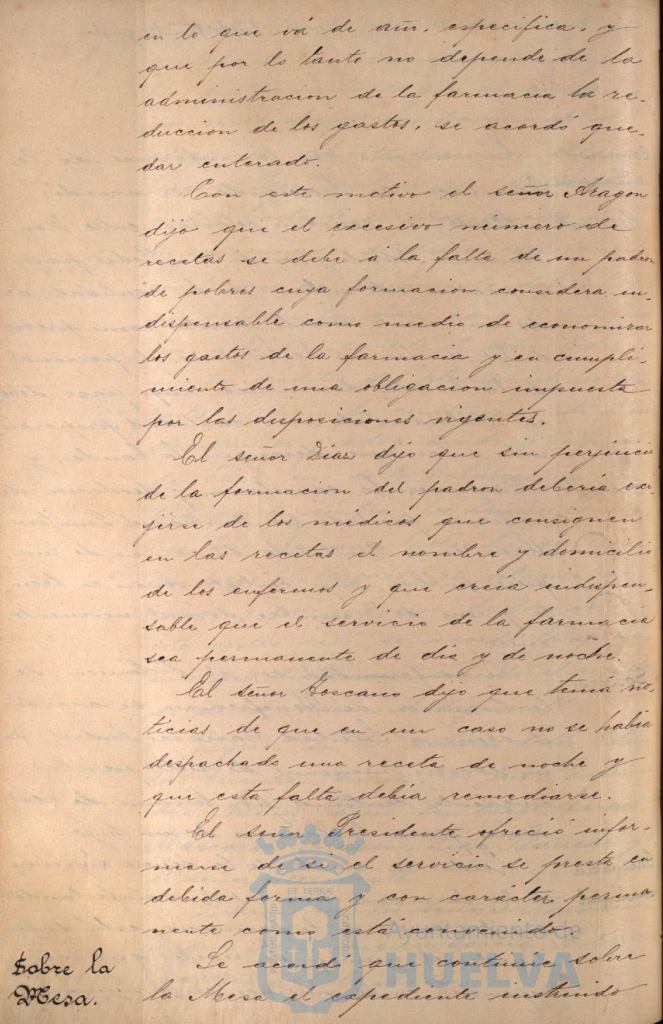 en lo que vá de año, especifica, y
que por lo tanto no depende de la
administracion de la farmacia la re-
duccion de los gastos, se acordó que-
dar enterado.
Con este motivo el señor Aragon
dijo que el excesivo número de
recetas se debe á la falta de un padron
de pobres cuya formacion considera in-
dispensable como medio de economizar
los gastos de la farmacia y en cumpli-
miento de una obligacion impuesta
por las disposiciones vigentes.
El señor Díaz dijo que sin perjuicio
de la formacion del padron debería exi-
jirse de los médicos que consignen
en las recetas el nombre y domicilio
de los enfermos y que creía indispen-
sable que el servicio de la farmacia
sea permanente de dia y de noche.
El señor Toscano dijo que tenía no-
ticias de que en un caso no se había
despachado una receta de noche y
que esta falta debía remediarse.
El señor Presidente ofreció infor-
marse de si el servicio se presta en
debida forma y con carácter perma-
nente como está convenido.
Sobre la
Mesa.
Se acordó que continue sobre
la Mesa el expediente instruido
Ayuntamiento de
HUELVA